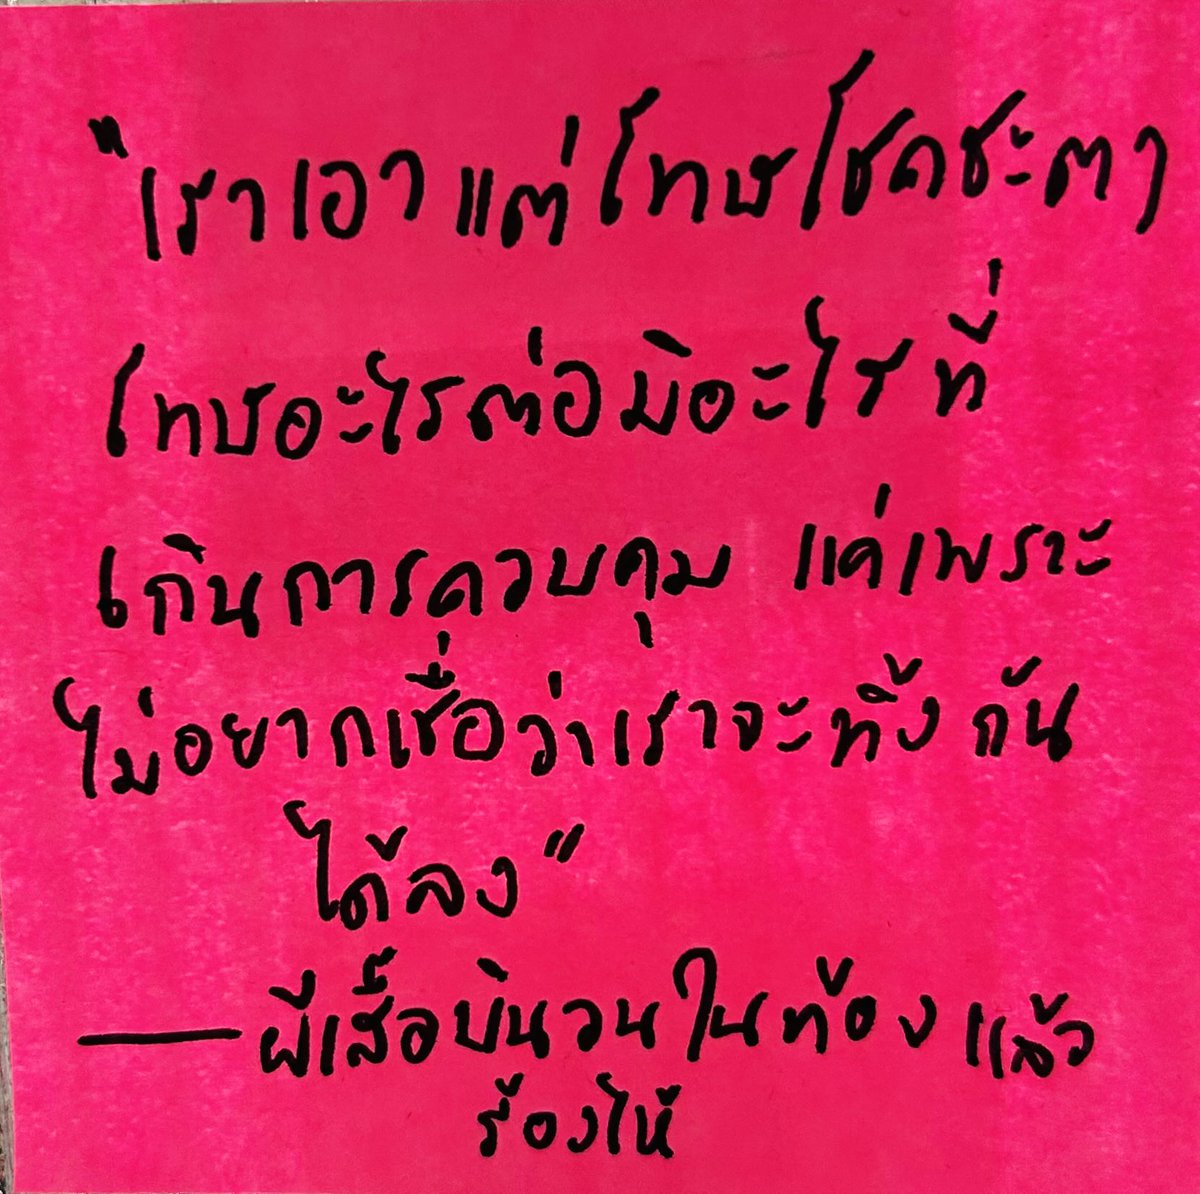 "เราเอาแต่โทษโชคชะตา
โทษอะไรต่อมิอะไรที่
เกินการควบคุม แค่เพราะ
ไม่อยากเชื่อว่าเราจะทิ้งกัน
ได้ลง"
— ผีเสื้อบินวนในท้องแล้ว
ร้องไห้